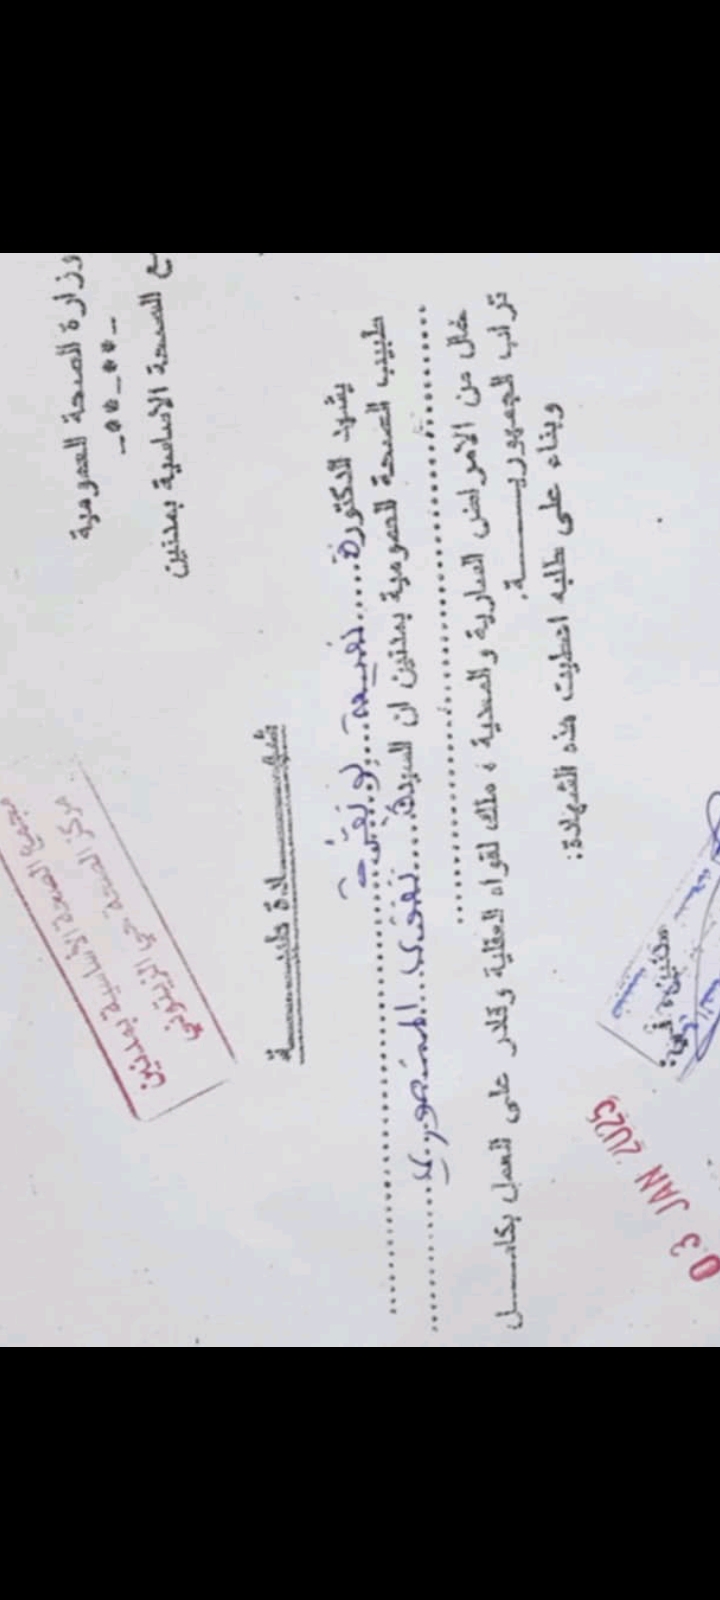 وزارة الصحة العمومية
-**-**-
ع الصحة الاساسية بمدنين
مجمع الصحة الأساسية بمدنين
مركز الصحة حي الزيتوني
شهـــــادة طبيـــــة
يشهد الدكتورة
طبيب الصحة العمومية بمدنين ان السيدة تقوى المنصوري
خال من الامراض السارية والمعدية ، ملك لقواه العقلية وقادر على العمل بكامـــل
تراب الجمهوريـــــة.
وبناء على طلبه اعطيت هذه الشهادة:
03 JAN 2025